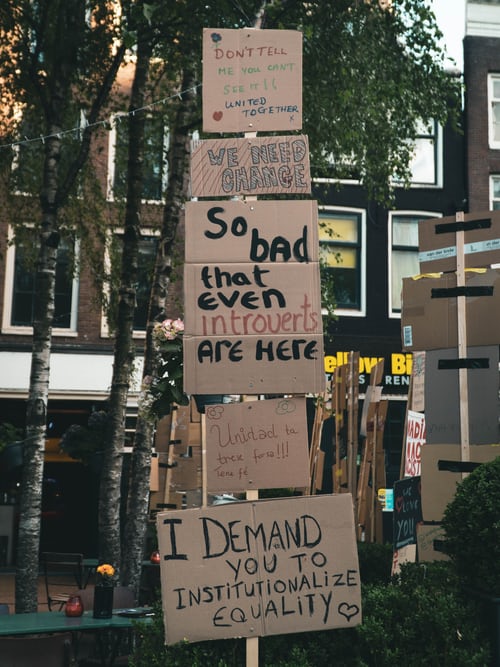 DON'T TELL
ME YOU CAN'T
SEE IT!!
UNITED
TOGETHER
x
WE NEED
CHANGE
So
bad
that
even
introverts
ARE HERE
Unidad ta
trese forsa!!!
Tene fé
I DEMAND
YOU TO
INSTITUTIONALIZE
EQUALITY
Yellow Bi
RENT
WE
LOVE
YOU